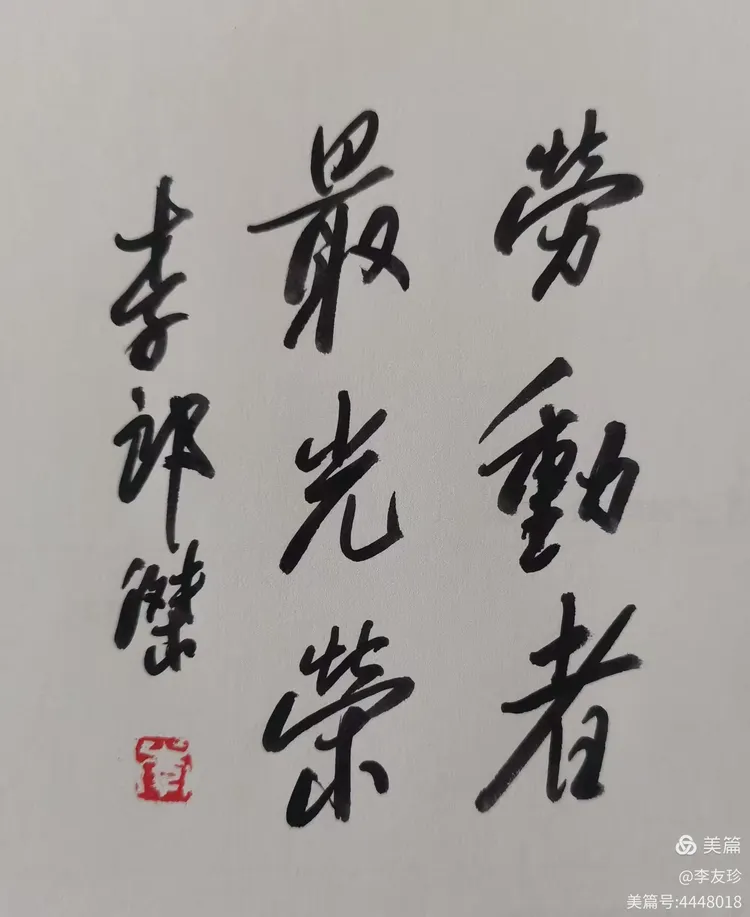 勞動者
最光榮
李郎傑
美篇
@李友珍
美篇号:4448018